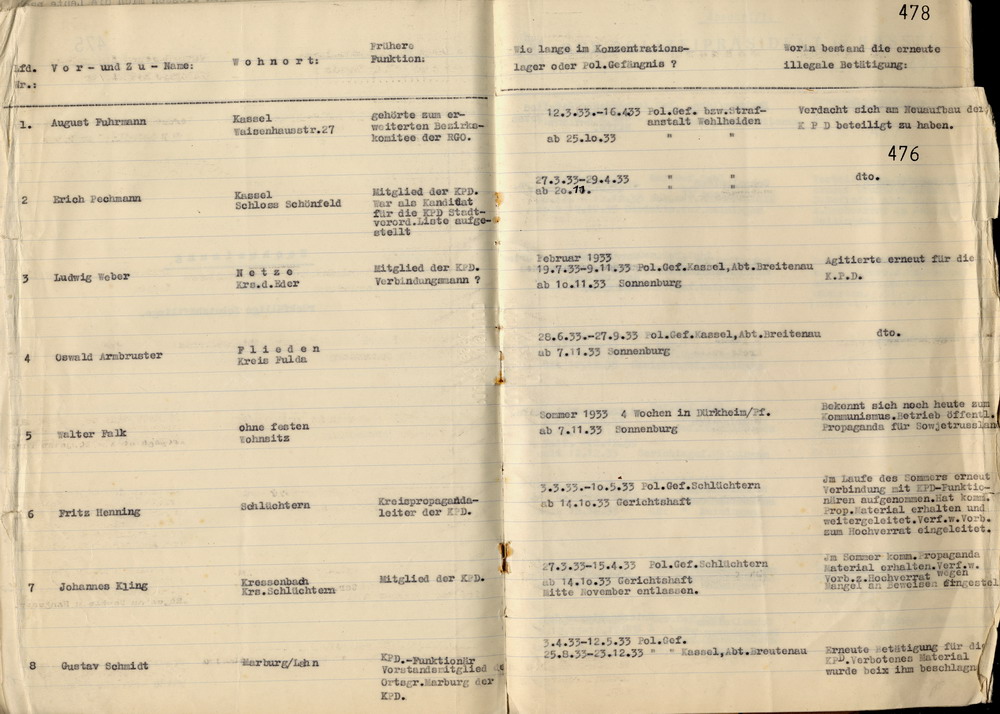 478
Lfd. Nr.:
Vor- und Zu-Name:
Wohnort:
Frühere
Funktion:
Wie lange im Konzentrations-
lager oder Pol.Gefängnis ?
Worin bestand die erneute
illegale Betätigung:
1.
August Fuhrmann
Kassel
Waisenhausstr.27
gehörte zum er-
weiterten Bezirks-
komitee der RGO.
12.3.33.-16.433 Pol.Gef. bzw.Straf-
anstalt Wehlheiden
ab 25.10.33 " "
Verdacht sich am Neuaufbau der
K P D beteiligt zu haben.
476
2
Erich Pechmann
Kassel
Schloss Schönfeld
Mitglied der KPD.
War als Kandidat
für die KPD Stadt-
verord.Liste aufge-
stellt
27.3.33-29.4.33 " "
ab 20.11. " "
dto.
3
Ludwig Weber
Netze
Krs.d.Eder
Mitglied der KPD.
Verbindungsmann ?
Februar 1933
19.7.33-9.11.33 Pol.Gef.Kassel,Abt.Breitenau
ab 10.11.33 Sonnenburg
Agitierte erneut für die
K.P.D.
4
Oswald Armbruster
Flieden
Kreis Fulda
28.6.33.-27.9.33 Pol.Gef.Kassel,Abt.Breitenau
ab 7.11.33 Sonnenburg
dto.
5
Walter Falk
ohne festen
Wohnsitz
Sommer 1933 4 Wochen in Dürkheim/Pf.
ab 7.11.33 Sonnenburg
Bekennt sich noch heute zum
Kommunismus.Betrieb öffentl.
Propaganda für Sowjetrusslan
6
Fritz Henning
Schlüchtern
Kreispropaganda-
leiter der KPD.
3.3.33.-10.5.33 Pol.Gef.Schlüchtern
ab 14.10.33 Gerichtshaft
Im Laufe des Sommers erneut
Verbindung mit KPD-Funktio-
nären aufgenommen.Hat komm.
Prop.Material erhalten und
weitergeleitet.Verf.w.Vorb.
zum Hochverrat eingeleitet.
7
Johannes Kling
Kressenbach
Krs.Schlüchtern
Mitglied der KPD.
27.3.33-15.4.33 Pol.Gef.Schlüchtern
ab 14.10.33 Gerichtshaft
Mitte November entlassen.
Im Sommer komm.Propaganda
Material erhalten.Verf.w.
Vorb.z.Hochverrat wegen
Mangel an Beweisen eingestel
8
Gustav Schmidt
Marburg/Lahn
KPD.-Funktionär
Vorstandsmitglied de
Ortsgr.Marburg der
KPD.
3.4.33-12.5.33 Pol.Gef.
25.8.33-23.12.33 " " Kassel,Abt.Breutenau
Erneute Betätigung für die
KPD.Verbotenes Material
wurde beix ihm beschlagn